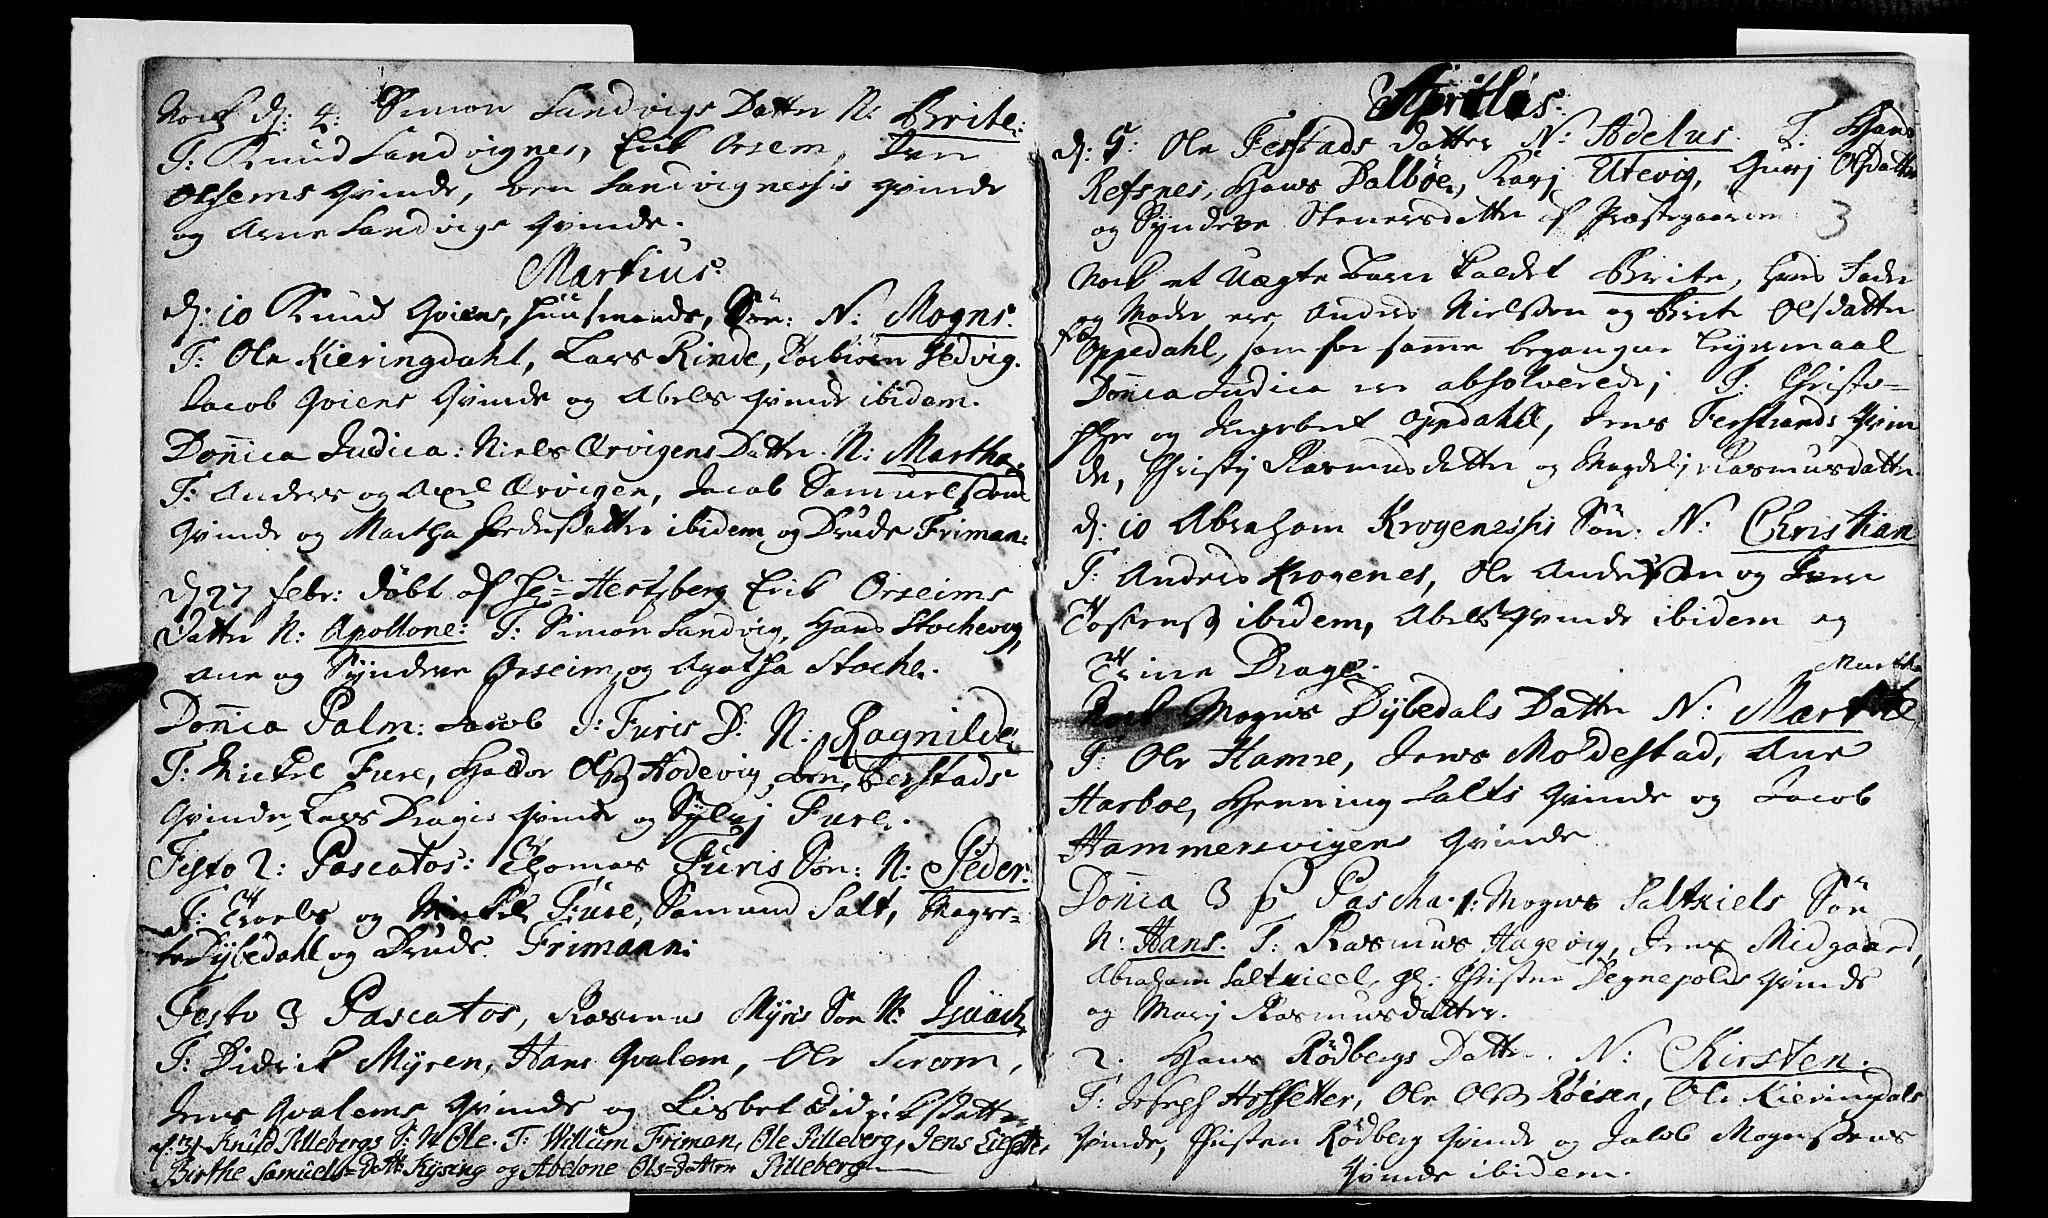 Nock dj: 4: Simon Sandvigs Datter N: Brite:
T: Knud Sandvignes, Erik Orsem, Iver
Olsems Qvinde, Iven Sandvignessis Qvinde
og Arne Sandvigs Qvinde.
Martius:
dj: 10 Knud Qviens, huusmands, Søn: N: Mogns.
T: Ole Kieringdahl, Lars Rinde, Torbiørn Sedvig.
Jacob Qviens Qvinde og Abels Qvinde ibidem.
Don̄ica Judica: Niels Ærvigens Datter. N: Martha.
T: Anders og Axel Ærvigen, Jacob Samuelsøns
Qvinde og Martha Pedersdatter ibidem og Drude Friman:
dj 27 febr: døbt af Hr= Hertzberg Erik Orseims
Datter N: Apollone: T: Simon Sandvig, Hans Stochevog,
Ane og Synderve Orseim, og Agatha Stoche.
Don̄ica Palm: Jacob I: Furis D: N: Ragnilde.
T: Mickel Fure, Haldor Ols Hodevig, Iver Berstads
Qvinde, Lars Dragis Qvinde og Sylvj Fure.
Festo 2: Pascatos: Thomas Furis Søn: N: Peder:
T: Troels og Mickel Fure, Samund Salt, Magre-
te Dybedahl og Drude Frimann:
Festo 3 Pascatos, Rasmus Myris Søn N: Isaach
T: Didrik Myren, Hans Qvalem, Ole Sereom,
Jens Qvalems Qvinde og Lisbet Didriksdatter
d: 31 Knud Pillebergs S: N Ole. T: Willum Friman, Ole Pilleberg, Jens
Birthe Samuels=datt: Kysing og Abelone Ols=datter Pilleberg
Aprilis:
dj: 5: Ole Ferstads datter N: Adelus. T: Hans
Refsnes, Hans Dalbøe, Karj Utevig, Gurj Olsdatter
og Synderve Stenersdatter af Præstegaarden
3
Nock et Uægte Barn kaldet Brite, hvis Fader
og Moder ere Anders Nielsen og Brite Olsdatter
fra Oppedahl, som for samme begangne Leyermaal
Don̄ica Judica ere absolverede; T: Christo=
pher og Ingebret Oppdahl, Jens Ferstands Qvin
de, Christj Rasmusdatter og Magdelj Rasmusdatter
dj: 10 Abraham Krogenessis Søn: N: Christian
T: Anders Krogenes, Ole Andersøn og Iver
Torstens ibidem, Abels Qvinde ibidem og
Trine Drage.
Martha
Nock Mogns Dybedals Datter N: Marthe
T: Ole Hamre, Jens Moldestad, Ane
Harboe, Henning Salts Qvinde og Jacob
Hammersvigens Qvinde
Don̄ica 3 p Pascha: 1: Mogns Saltkiels Søn
N: Hans. T: Rasmus Hagevig, Jens Midgaard,
Abraham Saltkieel, Hr: Christen Degnepolds Qvinde
og Marj Rasmusdatter.
2. Hans Rødbergs Datter. N: Kirsten.
T: Joseph Hossetter, Ole Ols Røisen, Ole Kieringdals
Qvinde, Christen Rødberg Qvinde og Jacob Mogensens
Qvinde ibidem.